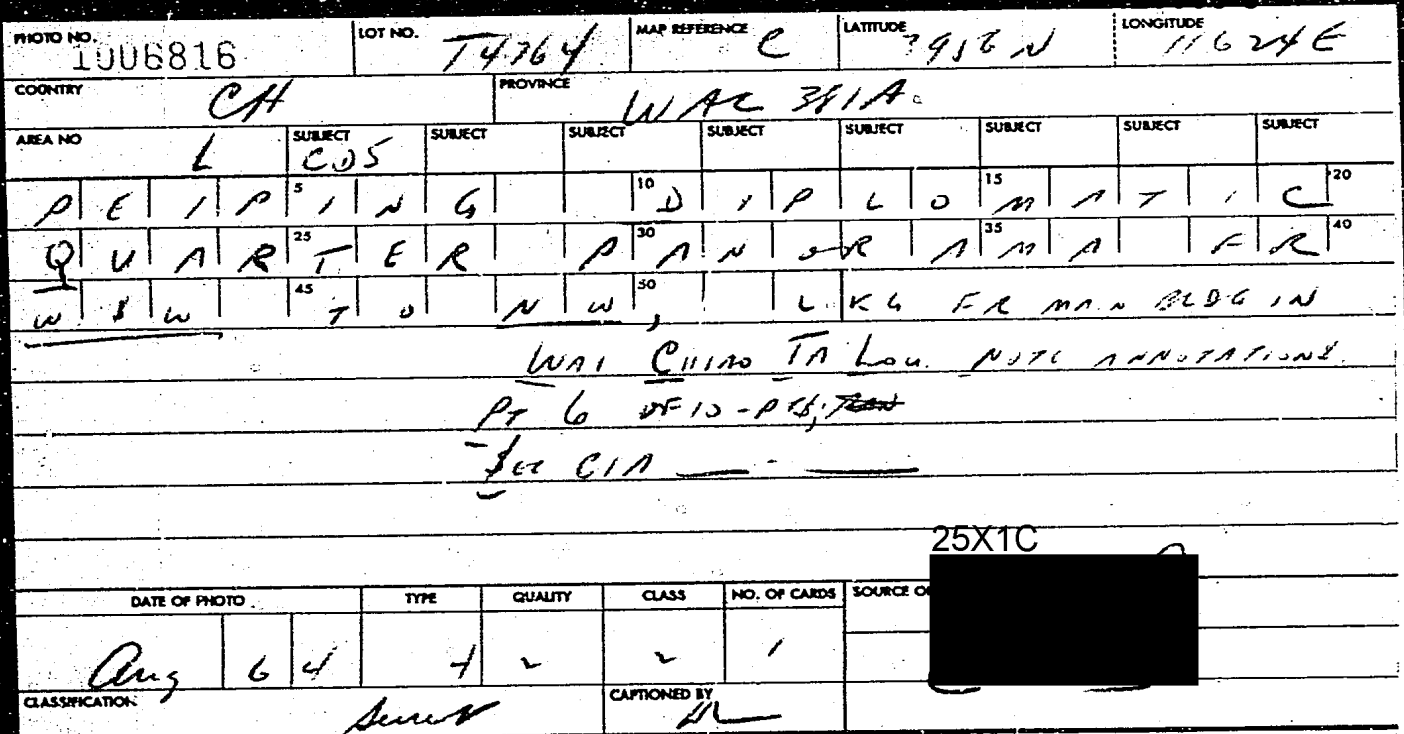 PHOTO NO. LOT NO. MAP REFERENCE LATITUDE LONGITUDE
1006816 T4764 C 3956 N 11624E
COUNTRY CH PROVINCE WAC 381A.
AREA NO L SUBJECT SUBJECT SUBJECT SUBJECT SUBJECT SUBJECT SUBJECT SUBJECT
CD5
5 10 15 20
PEIPING DIPLOMATIC
25 30 35 40
QUARTER PANORAMA FR
45 50
WSW TO NW, LKG FR MAIN BLDG IN
WAI CHIAO TA LOU. NOTE ANNOTATIONS.
PT 6 OF 10-PTS;
SEE CIA
25X1C
DATE OF PHOTO TYPE QUALITY CLASS NO. OF CARDS SOURCE O
Aug 64 4 2 2 1
CLASSIFICATION Secret CAPTIONED BY